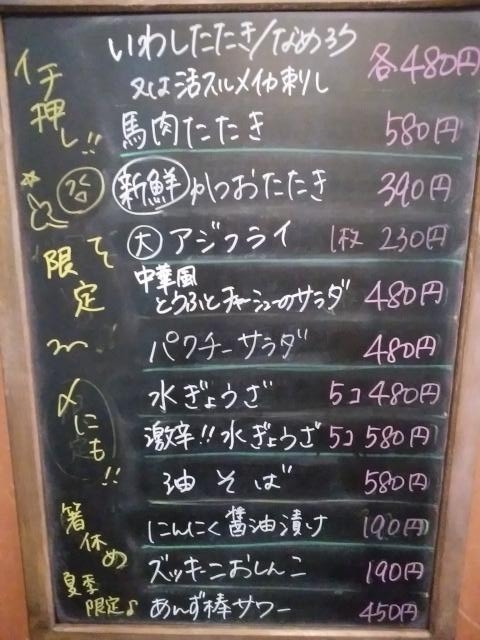 イチ押し!!
いわしたたき/なめろう 各480円
又は活スルメイカ刺し
馬肉たたき 580円
新鮮 かつおたたき 390円
大 アジフライ 1枚 230円
限定
中華風
とうふとチャーシューのサラダ 480円
パクチーサラダ 480円
〆にも!!
水ぎょうざ 5コ 480円
激辛!!水ぎょうざ 5コ 580円
油そば 580円
箸休め
にんにく醤油漬け 190円
ズッキーニおしんこ 190円
夏季
限定♪
あんず棒サワー 450円